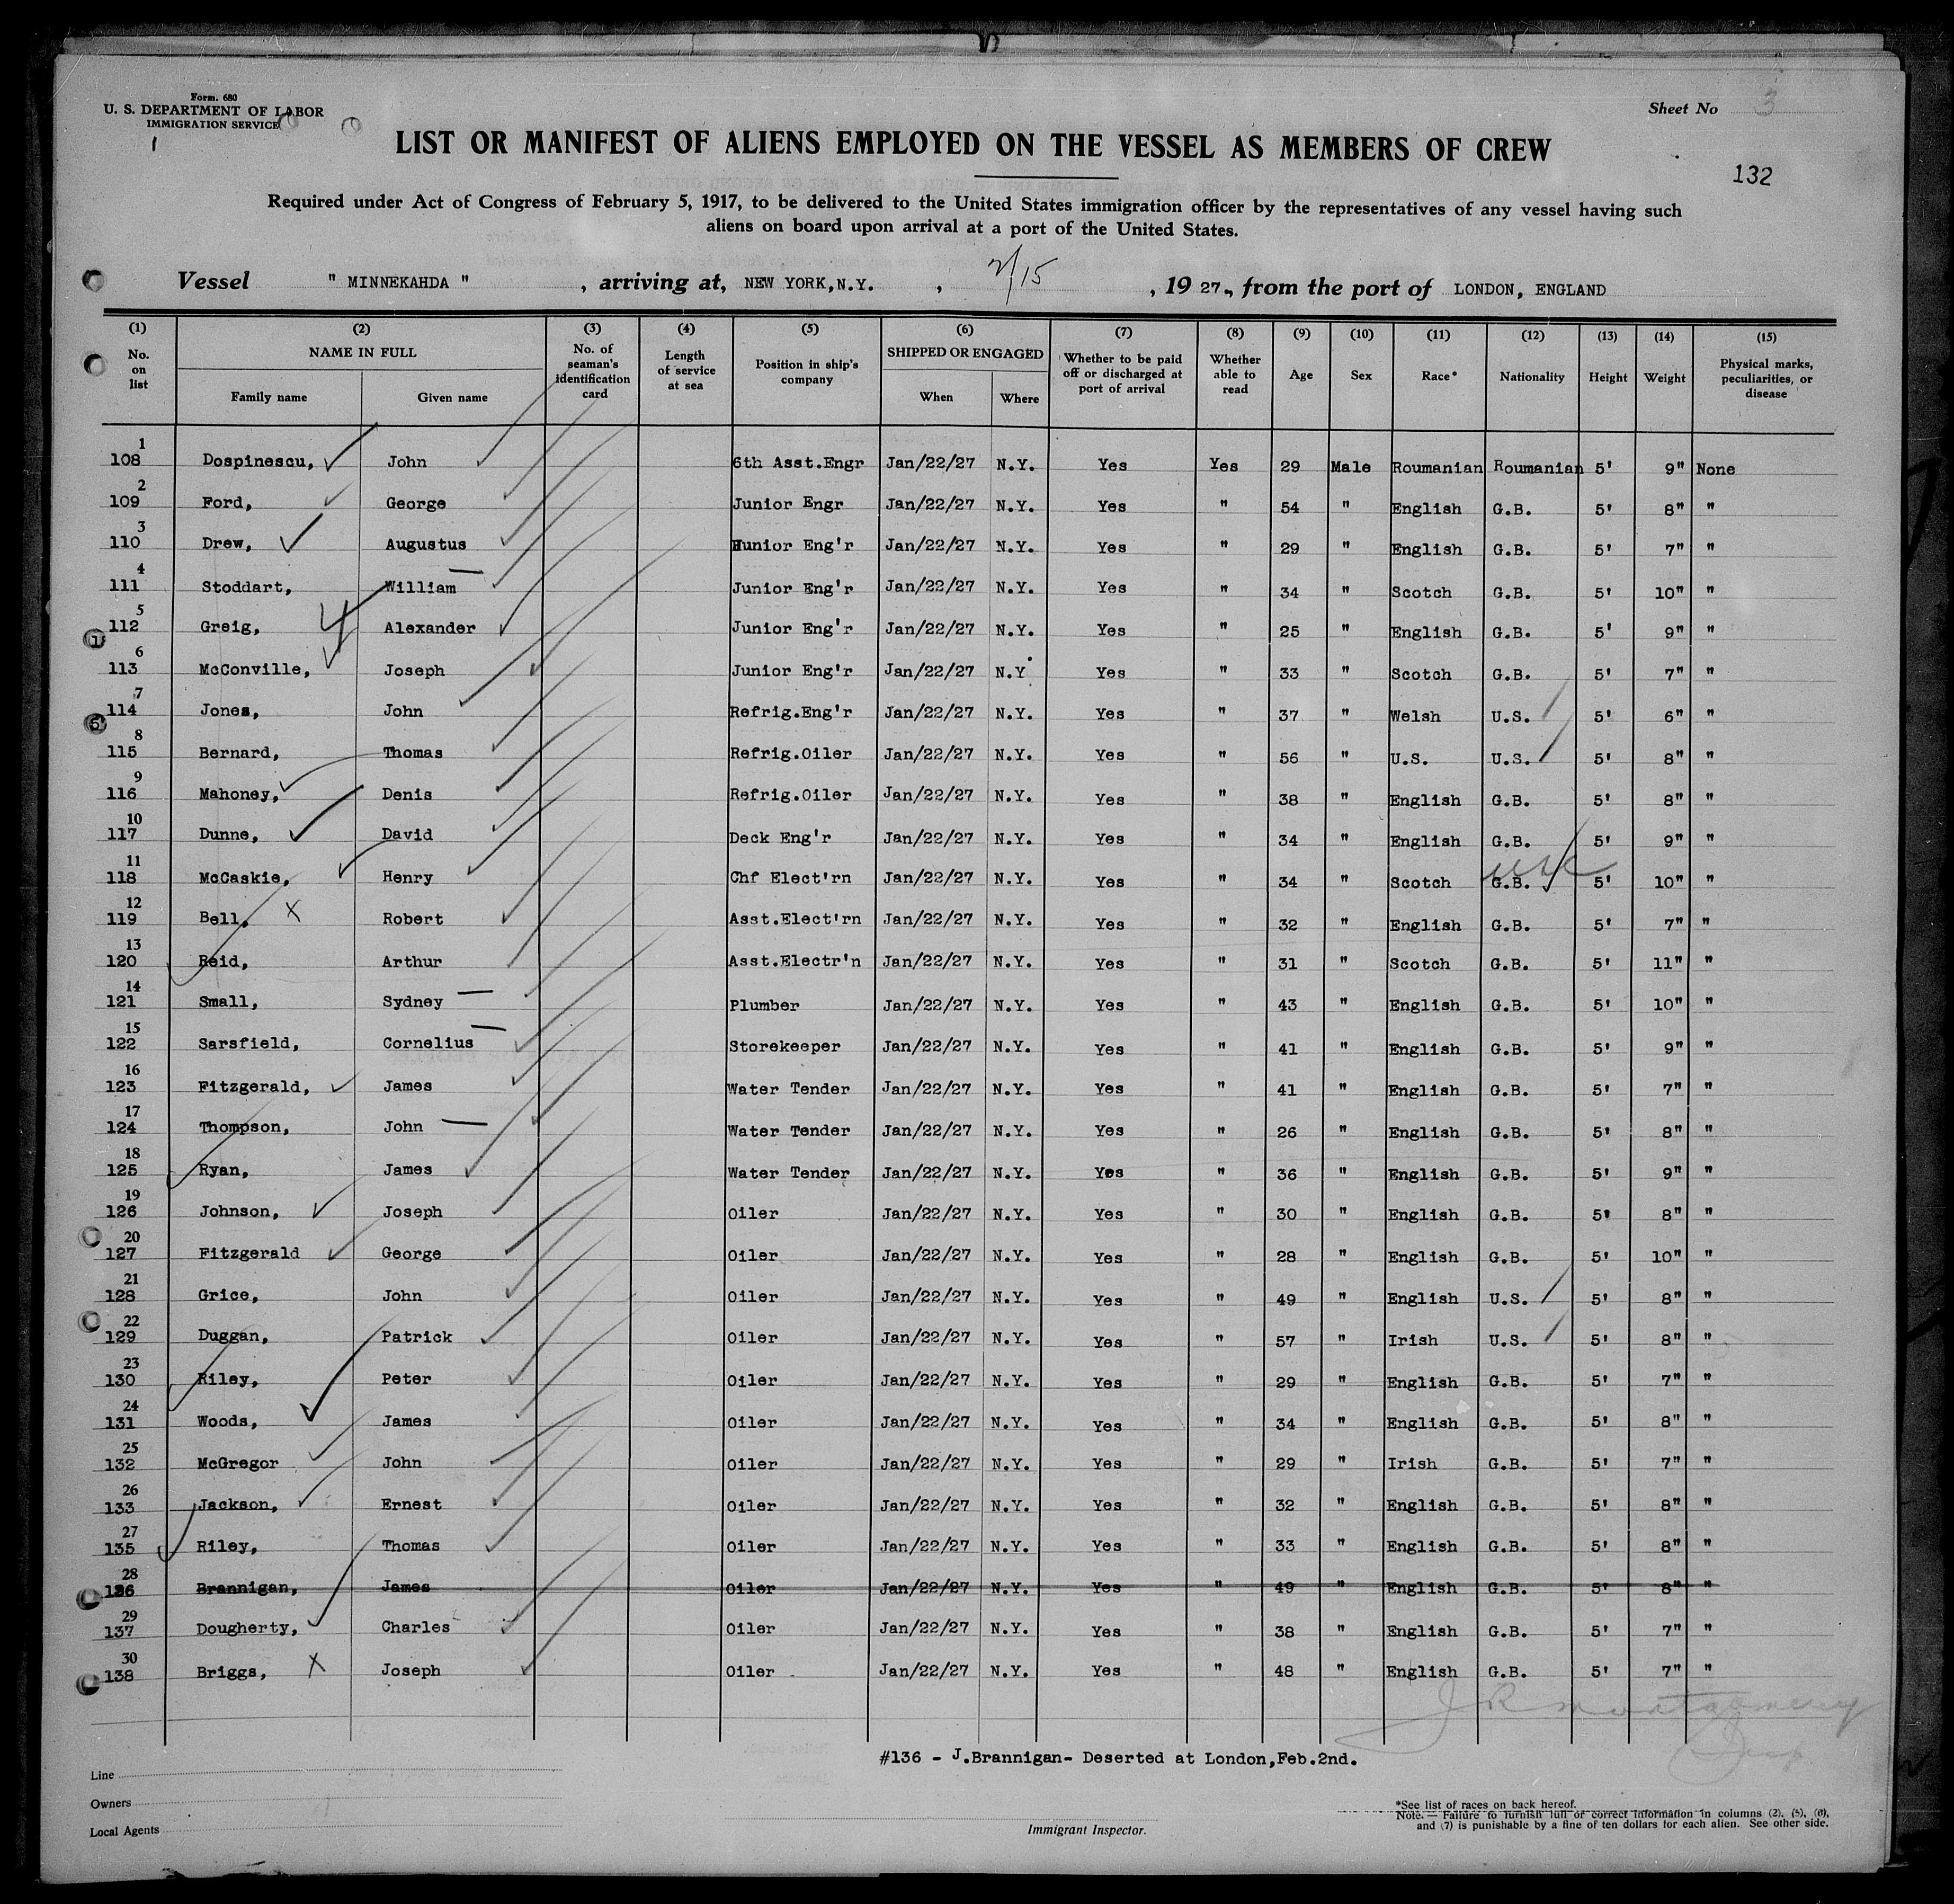 Form. 680
U. S. DEPARTMENT OF LABOR
IMMIGRATION SERVICE
Sheet No 3
LIST OR MANIFEST OF ALIENS EMPLOYED ON THE VESSEL AS MEMBERS OF CREW
132
Required under Act of Congress of February 5, 1917, to be delivered to the United States immigration officer by the representatives of any vessel having such
aliens on board upon arrival at a port of the United States.
Vessel " MINNEKAHDA " , arriving at, NEW YORK,N.Y. , 2/15 , 19 27., from the port of LONDON, ENGLAND
(1) (2) (3) (4) (5) (6) (7) (8) (9) (10) (11) (12) (13) (14) (15)
No. on list NAME IN FULL Family name Given name No. of seaman's identification card Length of service at sea Position in ship's company SHIPPED OR ENGAGED When Where Whether to be paid off or discharged at port of arrival Whether able to read Age Sex Race* Nationality Height Weight Physical marks, peculiarities, or disease
1 108 Dospinescu, John 6th Asst.Engr Jan/22/27 N.Y. Yes Yes 29 Male Roumanian Roumanian 5' 9" None
2 109 Ford, George Junior Engr Jan/22/27 N.Y. Yes " 54 " English G.B. 5' 8" "
3 110 Drew, Augustus Hunior Eng'r Jan/22/27 N.Y. Yes " 29 " English G.B. 5' 7" "
4 111 Stoddart, William Junior Eng'r Jan/22/27 N.Y. Yes " 34 " Scotch G.B. 5' 10" "
5 112 Greig, Alexander Junior Eng'r Jan/22/27 N.Y. Yes " 25 " English G.B. 5' 9" "
6 113 McConville, Joseph Junior Eng'r Jan/22/27 N.Y. Yes " 33 " Scotch G.B. 5' 7" "
7 114 Jones, John Refrig.Eng'r Jan/22/27 N.Y. Yes " 37 " Welsh U.S. 5' 6" "
8 115 Bernard, Thomas Refrig.Oiler Jan/22/27 N.Y. Yes " 56 " U.S. U.S. 5' 8" "
9 116 Mahoney, Denis Refrig.Oiler Jan/22/27 N.Y. Yes " 38 " English G.B. 5' 8" "
10 117 Dunne, David Deck Eng'r Jan/22/27 N.Y. Yes " 34 " English G.B. 5' 9" "
11 118 McCaskie, Henry Chf Elect'rn Jan/22/27 N.Y. Yes " 34 " Scotch G.B. 5' 10" "
12 119 Bell, X Robert Asst.Elect'rn Jan/22/27 N.Y. Yes " 32 " English G.B. 5' 7" "
13 120 Reid, Arthur Asst.Electr'n Jan/22/27 N.Y. Yes " 31 " Scotch G.B. 5' 11" "
14 121 Small, Sydney Plumber Jan/22/27 N.Y. Yes " 43 " English G.B. 5' 10" "
15 122 Sarsfield, Cornelius Storekeeper Jan/22/27 N.Y. Yes " 41 " English G.B. 5' 9" "
16 123 Fitzgerald, James Water Tender Jan/22/27 N.Y. Yes " 41 " English G.B. 5' 7" "
17 124 Thompson, John Water Tender Jan/22/27 N.Y. Yes " 26 " English G.B. 5' 8" "
18 125 Ryan, James Water Tender Jan/22/27 N.Y. Yes " 36 " English G.B. 5' 9" "
19 126 Johnson, Joseph Oiler Jan/22/27 N.Y. Yes " 30 " English G.B. 5' 8" "
20 127 Fitzgerald George Oiler Jan/22/27 N.Y. Yes " 28 " English G.B. 5' 10" "
21 128 Grice, John Oiler Jan/22/27 N.Y. Yes " 49 " English U.S. 5' 8" "
22 129 Duggan, Patrick Oiler Jan/22/27 N.Y. Yes " 57 " Irish U.S. 5' 8" "
23 130 Riley, Peter Oiler Jan/22/27 N.Y. Yes " 29 " English G.B. 5' 7" "
24 131 Woods, James Oiler Jan/22/27 N.Y. Yes " 34 " English G.B. 5' 8" "
25 132 McGregor John Oiler Jan/22/27 N.Y. Yes " 29 " Irish G.B. 5' 7" "
26 133 Jackson, Ernest Oiler Jan/22/27 N.Y. Yes " 32 " English G.B. 5' 8" "
27 135 Riley, Thomas Oiler Jan/22/27 N.Y. Yes " 33 " English G.B. 5' 8" "
28 136 Brannigan, James Oiler Jan/22/27 N.Y. Yes " 49 " English G.B. 5' 8" "
29 137 Dougherty, Charles Oiler Jan/22/27 N.Y. Yes " 38 " English G.B. 5' 7" "
30 138 Briggs, X Joseph Oiler Jan/22/27 N.Y. Yes " 48 " English G.B. 5' 7" "
J R Montgomery
#136 - J.Brannigan- Deserted at London,Feb.2nd.
Line
Owners
Local Agents
Immigrant Inspector.
*See list of races on back hereof.
Note.— Failure to furnish full or correct information in columns (2), (5), (6),
and (7) is punishable by a fine of ten dollars for each alien. See other side.